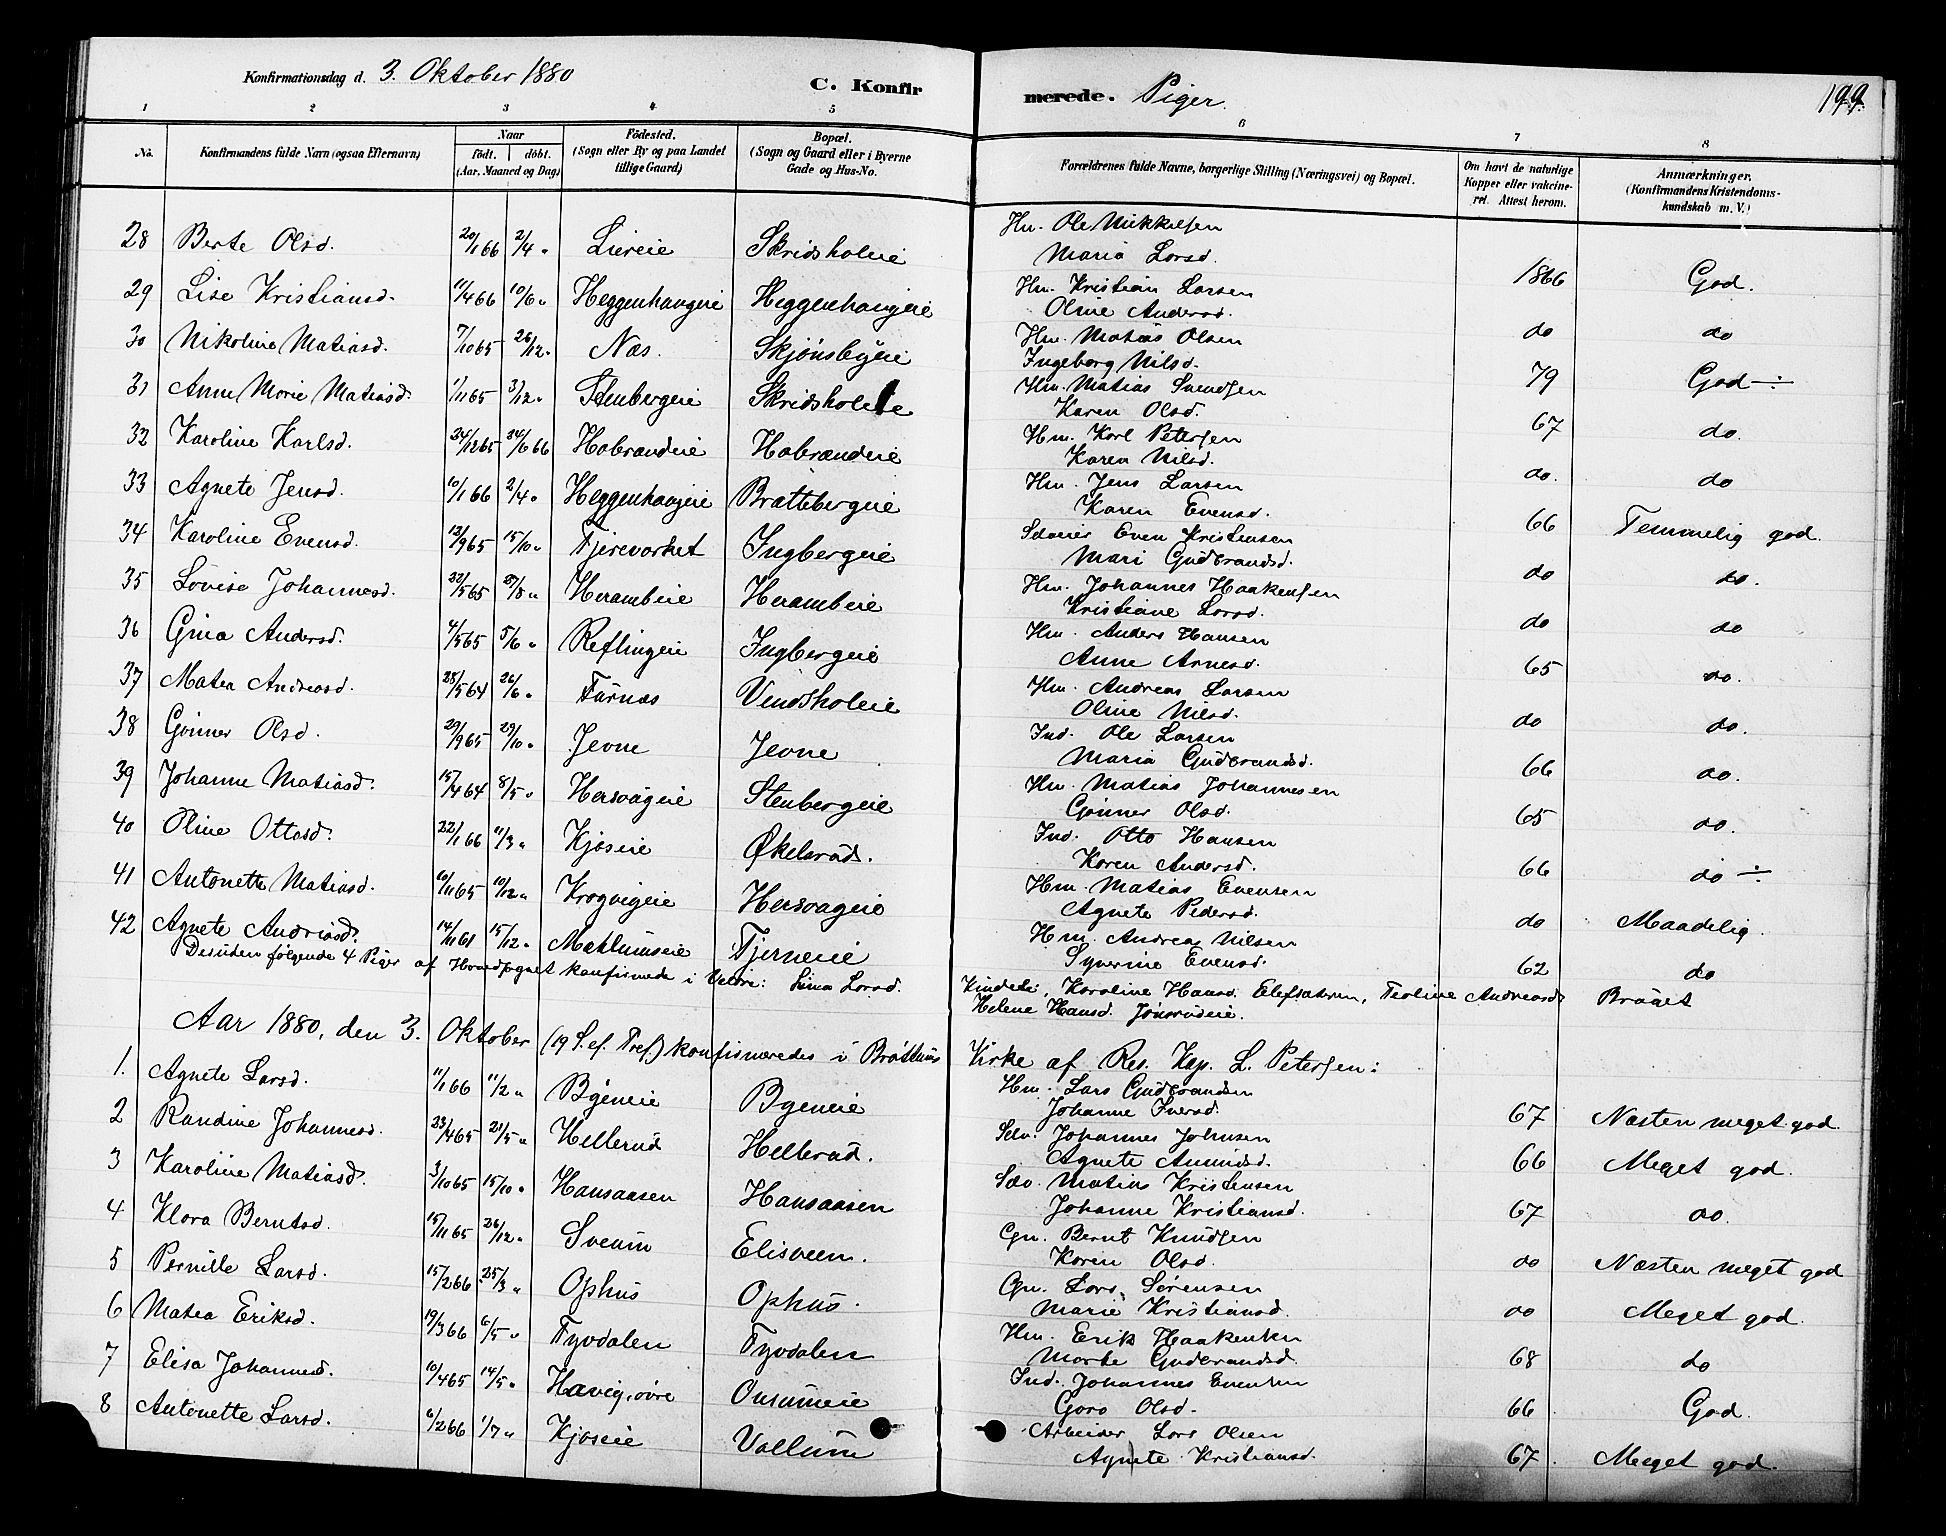 Konfirmationsdag d. 3. Oktober 1880 C. Konfirmerede. Piger. 199.
1 2 3 4 5 6 7 8
No. Konfirmandens fulde Navn (ogsaa Efternavn) Naar födt. döbt. (Aar, Maaned og Dag) Födested. (Sogn eller By og paa Landet tillige Gaard) Bopæl. (Sogn og Gaard eller i Byerne Gade og Hus-No. Forældrenes fulde Navne, borgerlige Stilling (Næringsvei) og Bopæl. Om havt de naturlige Kopper eller vakcineret. Attest herom. Anmærkninger. (Konfirmandens Kristendomskundskab m. V.)
28 Berte Olsd. 20/1 66 2/4 " Liereie Skridsholeie Hm. Ole Mikkelsen
Maria Larsd. 1866 God.
29 Lise Kristiansd. 11/4 66 10/6 " Heggenhaugeie Heggenhaugeie Hm. Kristian Larsen
Oline Andersd. do do
30 Nikoline Matiasd. 7/10 65 26/12 " Næs. Skjönsbyeie Hm. Matias Olsen
Ingeborg Nilsd. 79 God ÷
31 Anne Marie Matiasd. 1/11 65 3/12 " Stenbergeie Skridsholeie Hm. Matias Svendsen
Karen Olsd. 67 do.
32 Karoline Karlsd. 24/12 65 24/6 66 Habrandeie Habrandeie Hm. Karl Petersen
Karen Nilsd. do. do
33 Agnete Jensd. 10/1 66 2/4 " Heggenhaugeie Brattebergeie Hm. Jens Larsen
Karen Evensd. 66 Temmelig god.
34 Karoline Evensd. 12/9 65 15/10 " Tjereværket Ingbergeie Selveier Even Kristensen
Mari Gudbrandsd. do do.
35 Lovise Johannesd. 22/5 65 27/8 " Herambeie Herambeie Hm. Johannes Haakensen
Kristiane Larsd. do do
36 Gina Andersd. 4/5 65 5/6 " Reflingeie Ingbergeie Hm. Anders Hansen
Anne Arnesd. 65 do.
37 Matea Andreasd. 28/5 64 26/6 " Furnæs Vendsholeie Hm. Andreas Larsen
Oline Nilsd. do do.
38 Gönner Olsd. 29/9 65 29/10 " Jevne Jevne Ind. Ole Larsen
Maria Gudbrandsd. 66 do.
39 Johanne Matiasd. 15/4 64 8/5 " Hersvageie Stenbergeie Hm. Matias Johannesen
Gönner Olsd. 65 do.
40 Oline Ottosd. 22/1 66 11/3 " Kjöseie Økelsrud. Ind. Otto Hansen
Karen Andersd. 66 do ÷
41 Antonette Matiasd. 10/11 65 10/12 " Krogvigeie Hersvageie Hm. Matias Evensen
Agnete Pedersd. do Maadelig.
42 Agnete Andreasd. 14/11 61 15/12 " Mæhlumseie Tjerneie Hm. Andreas Nilsen
Syverine Evensd. 62 do
Desuden fölgende 4 Piger af Hovedsognet konfirmede i Veldre: Lina Larsd. Karoline Hansd. Teoline Andreasd. Braaet
Helene Hansd.
Aar 1880, den 3. Oktober (19 S. ef. Tref.) konfirmeredes i Bröttum Kirke af Res. Kap. L. Petersen:
1. Agnete Larsd. 11/1 66 11/2 " Bgeneie Bgeneie Hm. Lars Gudbrandsen
Johanne Iversd. 67 Næsten meget god
2 Randine Johannesd. 23/4 65 21/5 " Hellerud Hellerud. Selv. Johannes Johnsen
Agnete Amundsd. 66 Meget god.
3 Karoline Matiasd. 3/10 65 15/10 " Hansaasen Hansaasen Selv. Matias Kristensen
Johanne Kristiansd. 67 do.
4 Klara Berntsd. 15/11 65 26/12 " Sveum Elisveen. Gm. Bernt Knudsen
Karen Olsd. do Næsten meget god
5 Pernille Larsd. 15/2 66 25/3 " Ophus Ophus. Gm. Lars Sörensen
Marie Kristiansd. do Meget god.
6 Matea Eriksd. 19/3 66 6/5 " Tyvdalen Tyvdalen Hm. Erik Haakensen
Marte Gudbrandsd. 68 do
7 Elisa Johannesd. 10/4 65 14/5 " Havig, övre Onsumeie Ind. Johannes Evensen
Goro Olsd. 66 God.
8 Antonette Larsd. 6/2 66 1/7 " Kjöseie Vallum Arbeider Lars Olsen
Agnete Kristiansd. 67. Meget god.